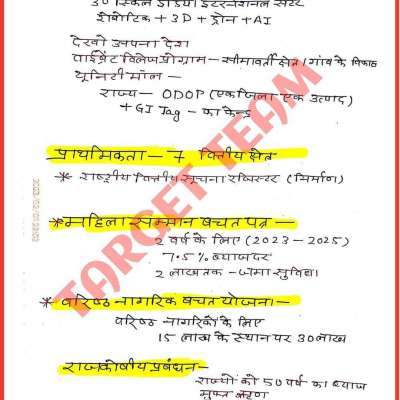 30 स्किल इंडिया इंटरनेशनल सेंटर
रोबोटिक + 3D + ड्रोन + AI
देखो अपना देश
वाईब्रेंट विलेज प्रोग्राम - सीमावर्ती क्षेत्र / गांव के विकास
यूनिटी मॉल -
राज्य - ODOP (एक जिला एक उत्पाद)
+ GI Tag - का केन्द्र
प्राथमिकता - 7 वित्तीय क्षेत्र
* राष्ट्रीय वित्तीय सूचना रजिस्टर (निर्माण)
* महिला सम्मान बचत पत्र -
2 वर्ष के लिए (2023 - 2025)
7.5% ब्याज दर
2 लाख तक - जमा सुविधा
* वरिष्ठ नागरिक बचत योजना -
वरिष्ठ नागरिकों के लिए
15 लाख के स्थान पर 30 लाख
राजकोषीय प्रबंधन -
राज्यों को 50 वर्ष का ब्याज
मुक्त ऋण
TARGET TEAM